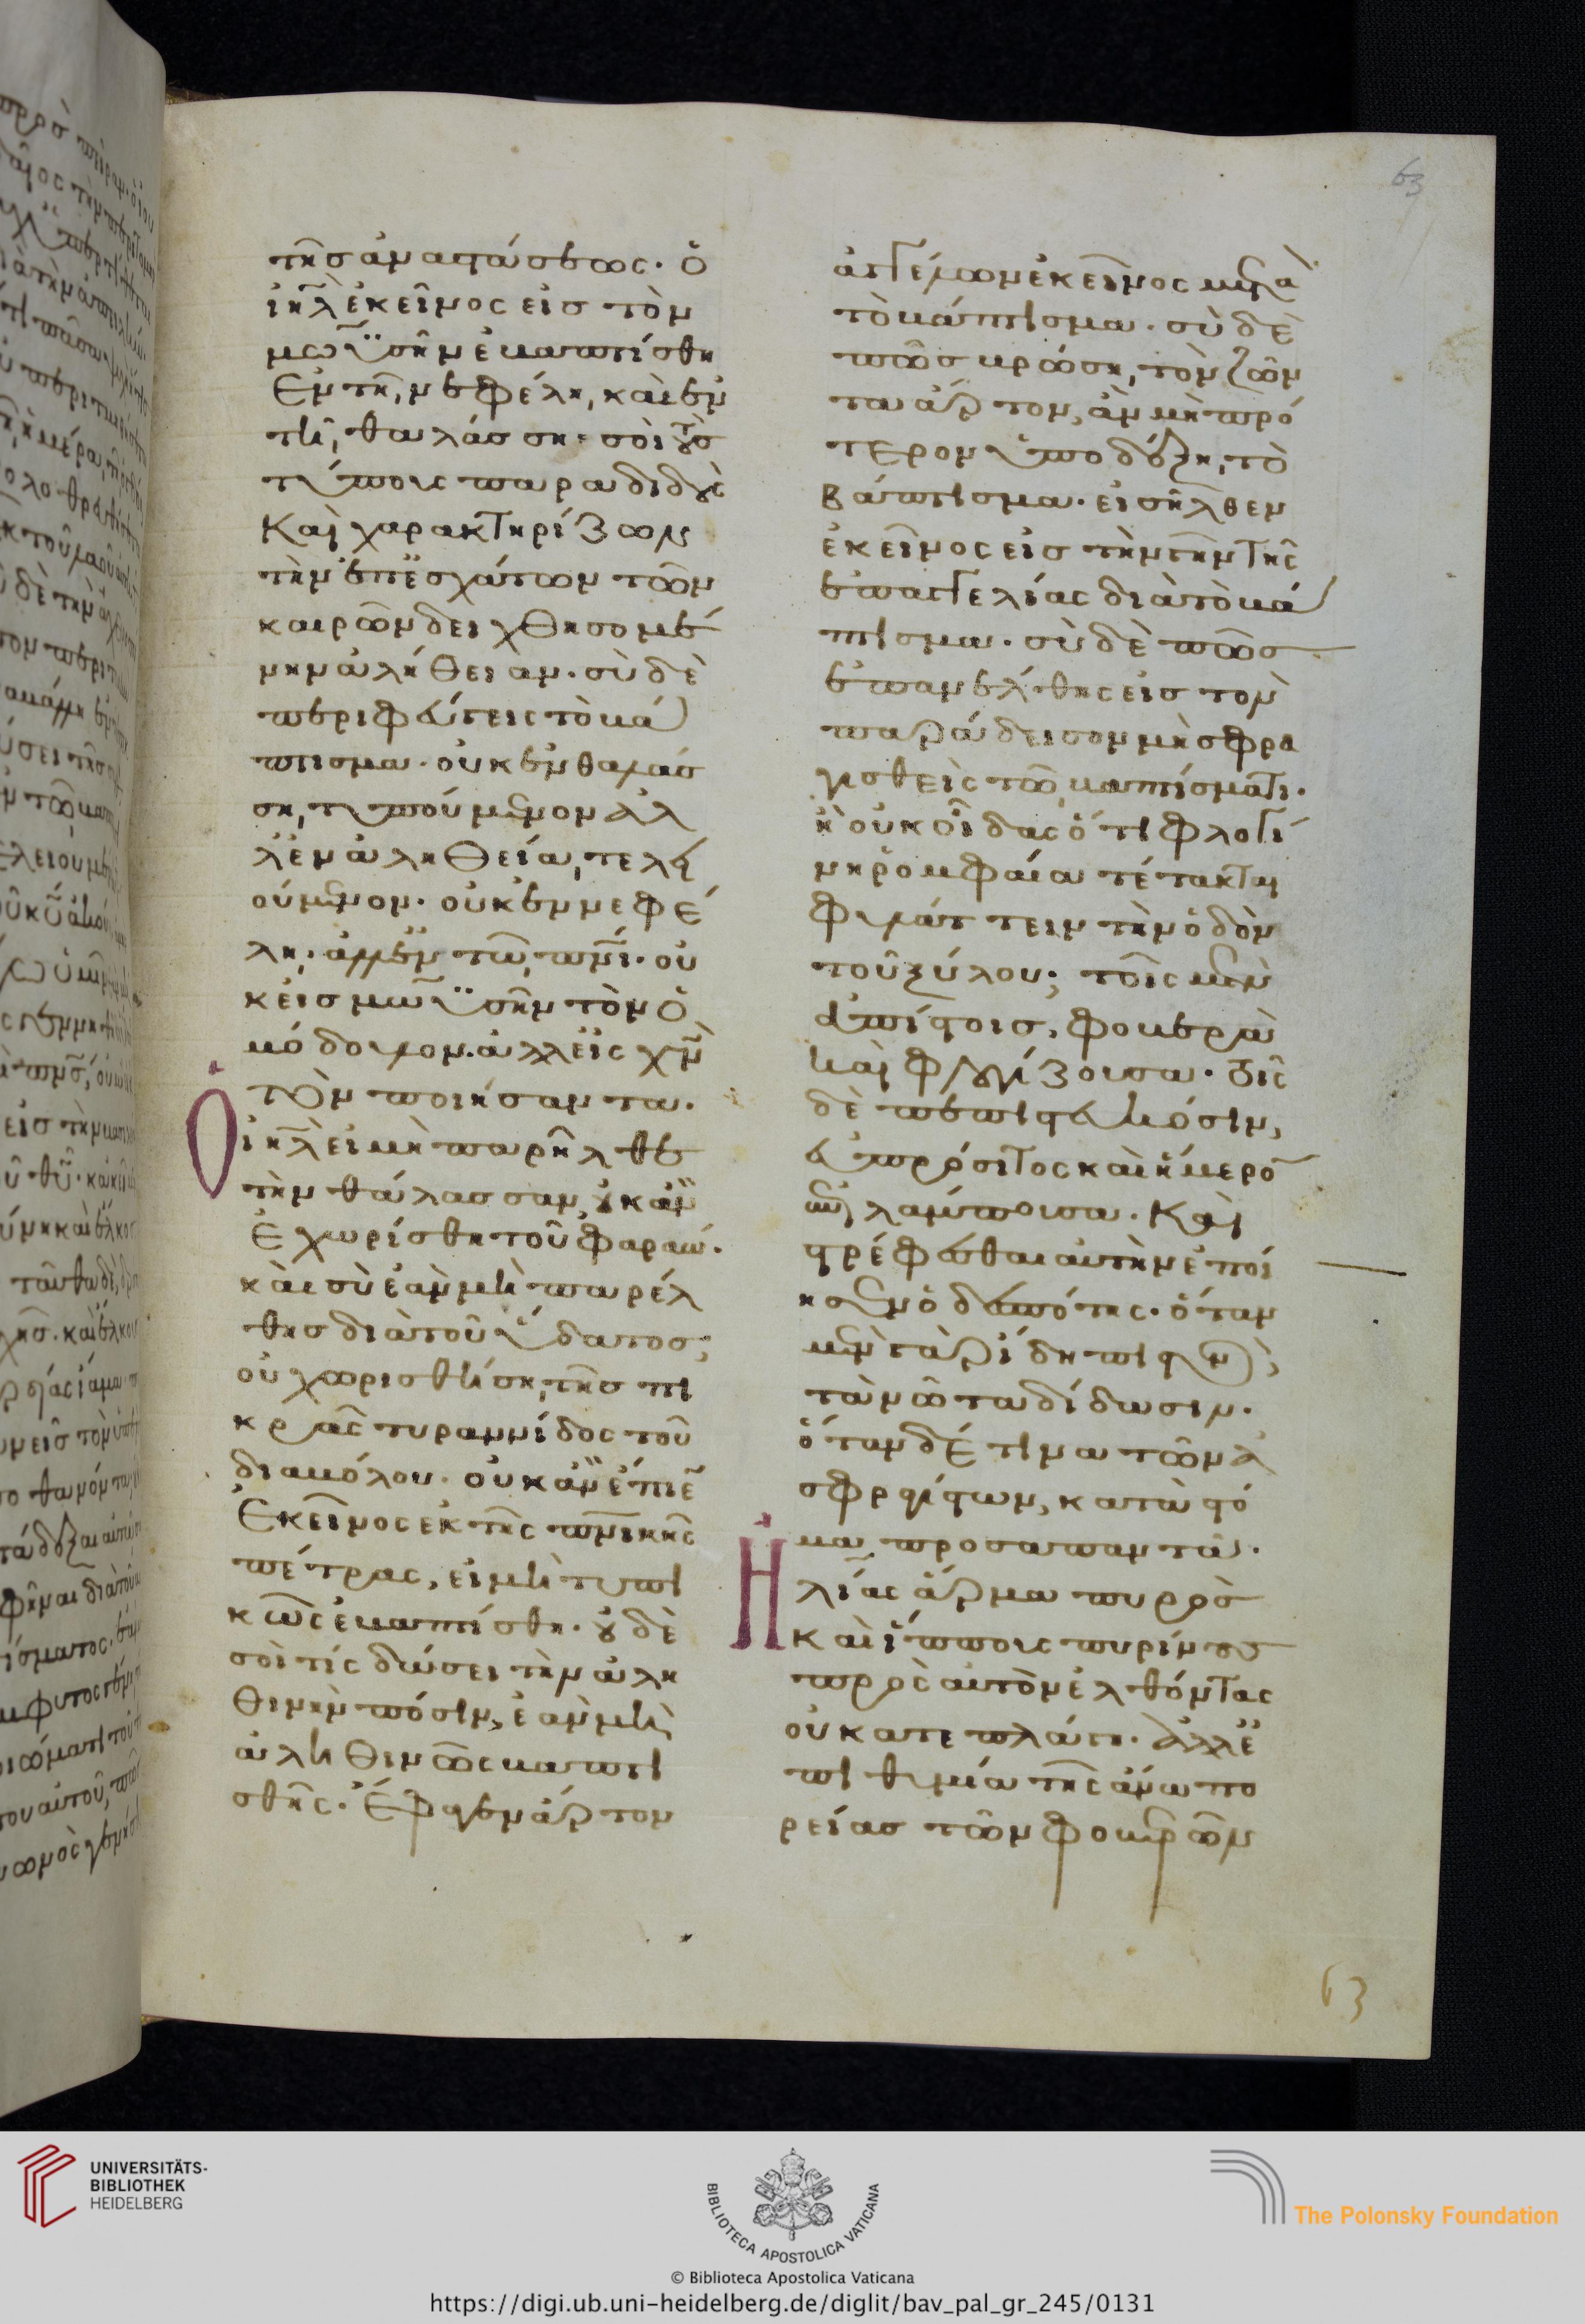 63
τῆς ἀναστάσεως. ὁ
ἰη̅λ ἐκεῖνος εἰς τὸν
μωϋσῆν ἐβαπτίσθη
ἐν τῆ, νεφέλη, καὶ ἐν
τῆ, θαλάσση· σοὶ τοὺς
τύπους παραδιδοὺς
καὶ χαρακτηρίζων
τὴν ἐπ' ἐσχάτων τῶν
καιρῶν δειχθησομέ
νην ἀλήθειαν. σὺ δὲ
περιφεύγεις τὸ βά
πτισμα. οὐκ ἐν θαλάσ
ση, τυπούμενον ἀλ
λ' ἐν ἀληθεία, τελει
ούμενον. οὐκ ἐν νεφέ
λη, ἀλλ' ἐν τῶ, πν̅ι. οὐ
κ εἰς μωϋσῆν τὸν ὁ
μόδουλον. ἀλλ' εἰς χν̅
τὸν ποιήσαντα.
Ὁ ἰη̅λ εἰ μὴ παρῆλθε
τὴν θάλασσαν, οὐκ ἂν
ἐχωρίσθη τοῦ φαραώ.
καὶ σὺ ἐὰν μὴ παρέλ
θης διὰ τοῦ ὕδατος,
οὐ χωρισθήση, τῆς πι
κρᾶς τυραννίδος τοῦ
διαβόλου. οὐκ ἂν ἔπιε
ἐκεῖνος ἐκ τῆς πν̅ικῆς
πέτρας, εἰ μὴ τυπι
κῶς ἐβαπτίσθη. οὐδὲ
σοί τίς δώσει τὴν ἀλη
θινὴν πόσιν, ἐὰν μὴ
ἀληθινῶς βαπτι
σθῆς. ἔφαγεν ἄρτον
ἀγγέλων ἐκεῖνος μετὰ
τὸ βάπτισμα. σὺ δὲ
πῶς βρώση, τὸν ζῶν
τα ἄρτον, ἂν μὴ πρό
τερον ὑποδέξη, τὸ
βάπτισμα. εἰσῆλθεν
ἐκεῖνος εἰς τὴν γῆν τῆς
ἐπαγγελίας διὰ τὸ βά
πτισμα. σὺ δὲ πῶς
ἐπανέλθης εἰς τὸν
παράδεισον μὴ σφρα
γισθεὶς τῶ, βαπτίσματι.
ἢ οὐκ οἶδας ὅτι φλογί
νη ῥομφαία τέτακται
φυλάττειν τὴν ὁδὸν
τοῦ ξύλου; τοῖς μὲν
ἀπίστοις, φοβερὰ
καὶ φλογίζουσα. τοῖς
δὲ πεπιστευκόσιν,
εὐπρόσιτος καὶ ἥμερον
ἐκλάμπουσα. καὶ
στρέφεσθαι αὐτὴν ἐποί
ησεν ὁ δεσπότης. ὅταν
μὲν γὰρ ἴδη πιστὸν,
τὰ νῶτα δίδωσιν.
ὅταν δέ τινα τῶν ἀ
σφραγίστων, κατὰ στό
μα προσαπαντᾶ.
Ἠλίας ἅρμα πυρὸς
καὶ ἵππους πυρίνους
πρὸς αὐτὸν ἐλθόντας
οὐ κατεπλάγη. ἀλλ' ἐ
πιθυμία τῆς ἄνω πο
ρείας τῶν φοβερῶν
63
UNIVERSITÄTS-
BIBLIOTHEK
HEIDELBERG
BIBLIOTECA APOSTOLICA VATICANA
The Polonsky Foundation
© Biblioteca Apostolica Vaticana
https://digi.ub.uni-heidelberg.de/diglit/bav_pal_gr_245/0131